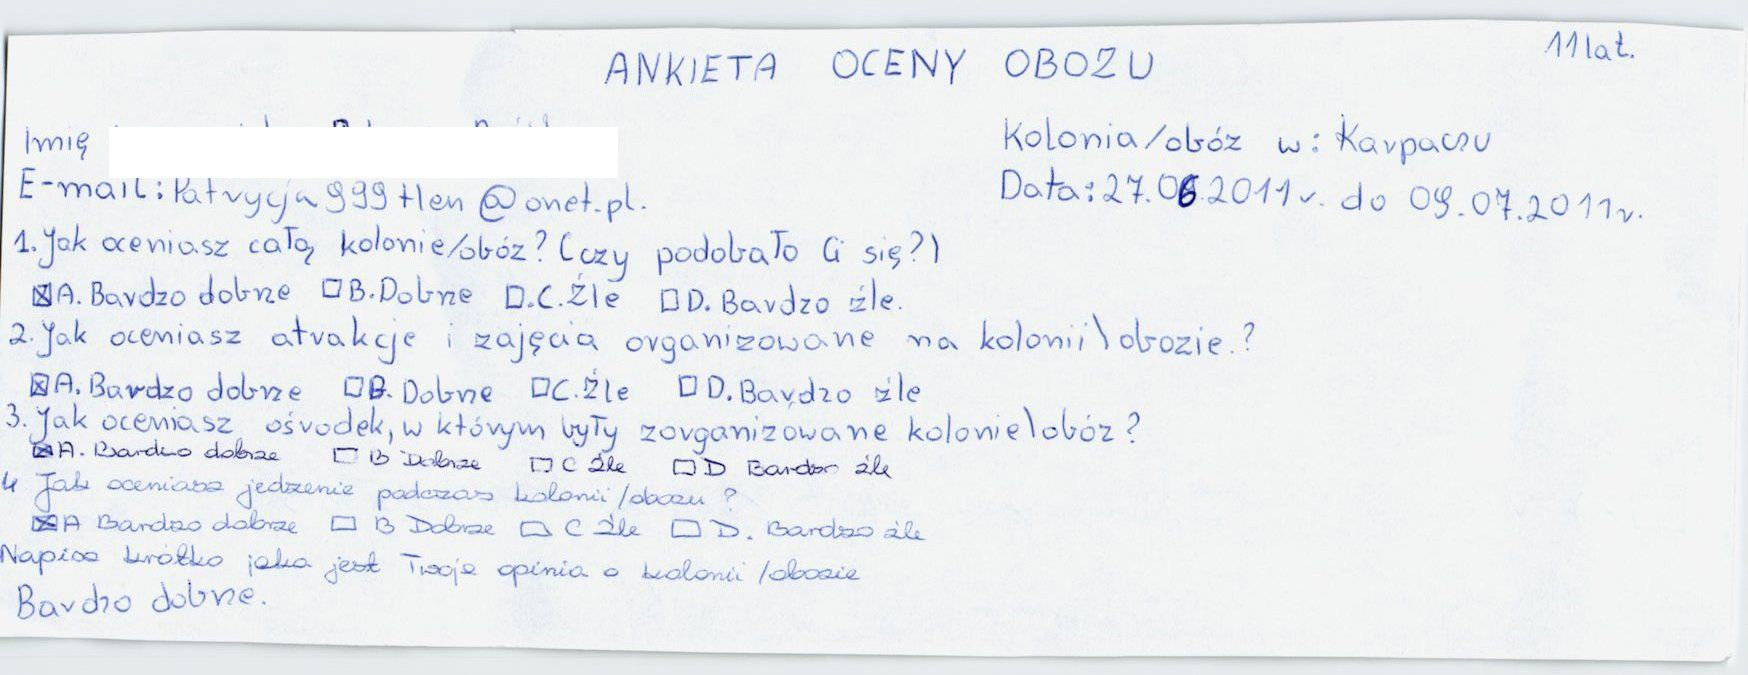 ANKIETA OCENY OBOZU
11 lat.
Imię
Kolonia/obóz w: Karpaczu
E-mail: Patrycja999tlen@onet.pl.
Data: 27.06.2011r. do 09.07.2011r.
1. Jak oceniasz całą kolonie/obóz? (czy podobało Ci się?)
☒A. Bardzo dobrze ☐B. Dobrze ☐.C. Źle ☐D. Bardzo źle.
2. Jak oceniasz atrakcje i zajęcia organizowane na kolonii\obozie.?
☒A. Bardzo dobrze ☐B. Dobrze ☐C. Źle ☐D. Bardzo źle
3. Jak oceniasz ośrodek, w którym były zorganizowane kolonie\obóz?
☒A. Bardzo dobrze ☐ B Dobrze ☐ C Źle ☐ D Bardzo źle
4 Jak oceniasz jedzenie podczas kolonii/obozu?
☒A Bardzo dobrze ☐ B Dobrze ☐ C Źle ☐ D. Bardzo źle
Napisz krótko jaka jest Twoja opinia o kolonii/obozie
Bardzo dobrze.